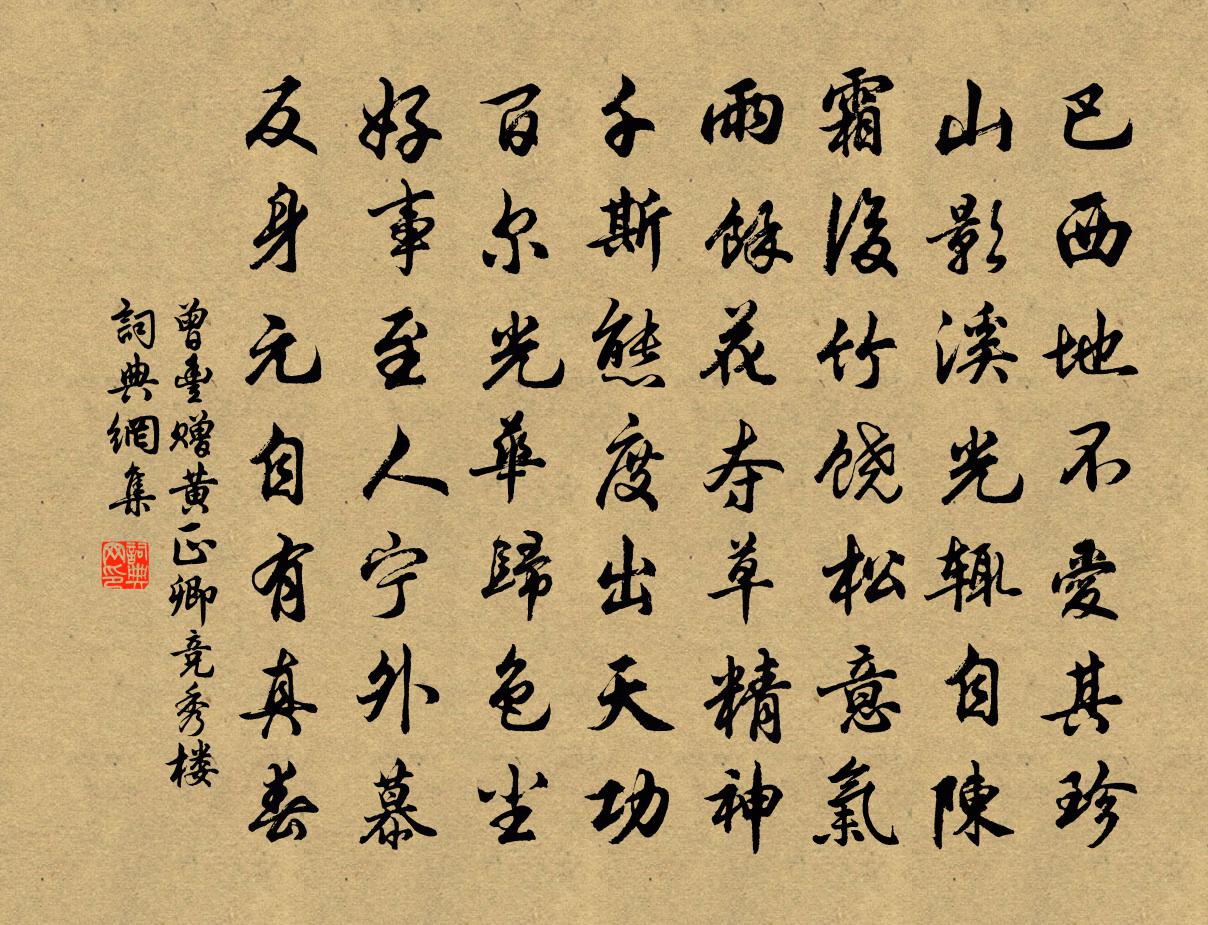 巴西地不爱其珍
山影溪光辄自陳
霜後竹饶松意氣
雨餘花夺草精神
千斯態度出天功
百尔光華歸色尘
好事至人宁外慕
反身元自有真春
曾豊赠黄正卿竞秀楼
詞典網集
詞典
网印